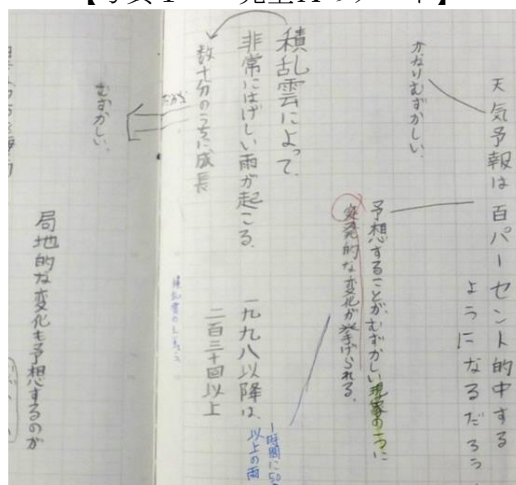 【写真１　児童Aのノート】
天気予報は百パーセント的中する
ようになるだろう
かなりむずかしい。
予想することが、むずかしい現象の一つに
突発的な変化が挙げられる。
一時間に50
以上の雨
積乱雲によって、
非常にはげしい雨が起こる。
数十分のうちに成長
一九九八以降は、
二百三十回以上
だから
むずかしい。
局地的な変化も予想するのが